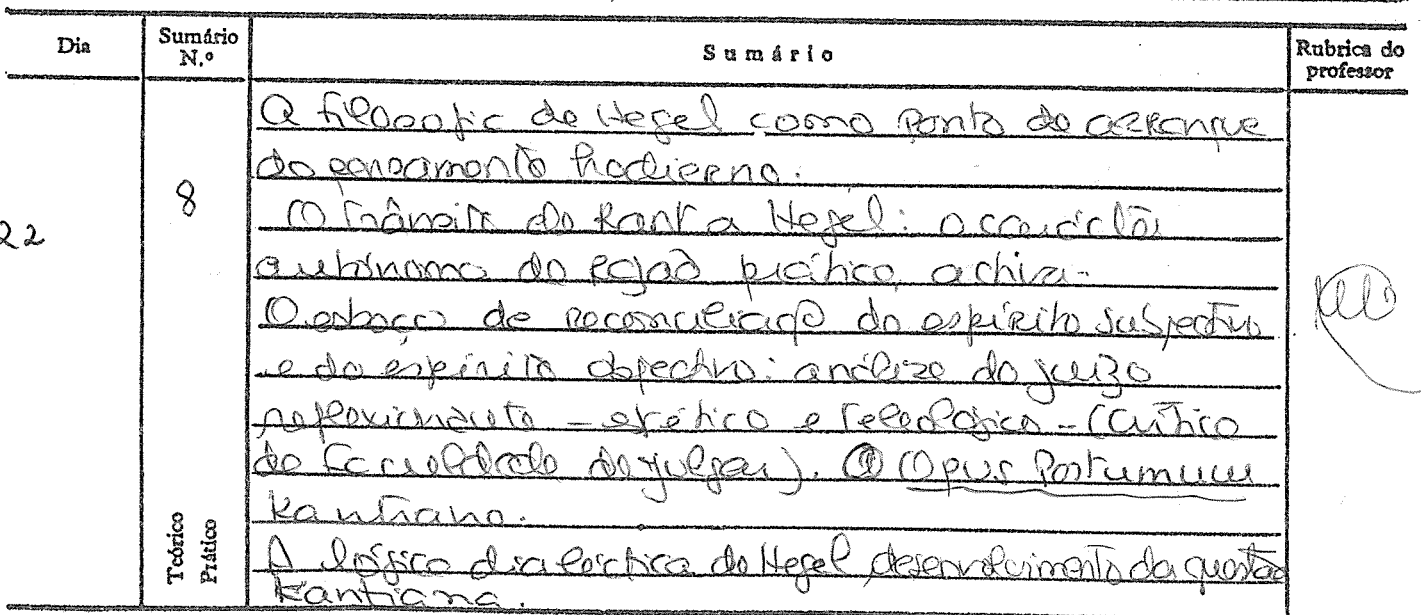 Dia
Sumário N.º
Sumário
Rubrica do professor
22
8
Teórico
Prático
A filosofia de Hegel como ponto de arranque
do pensamento hodierno.
O trânsito de Kant a Hegel:
autónomo da razão prática, activa.
O esboço de reconciliação do espírito subjectivo
e do espírito objectivo: análise do juízo
reflexionante - estético e teleológico - (Crítica
da Faculdade de julgar). O Opus Postumum
Kantiano.
A lógica dialéctica de Hegel, desenvolvimento da questão
Kantiana.